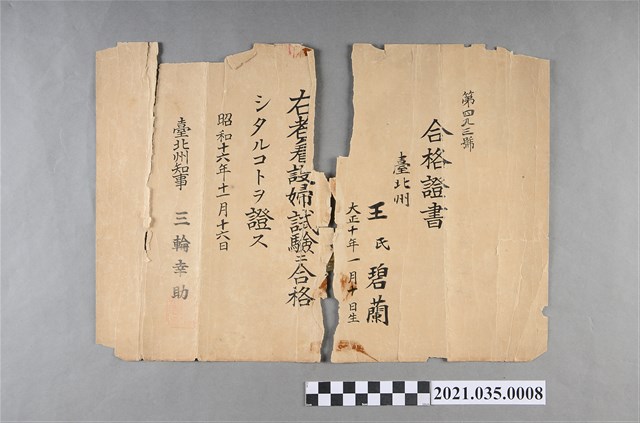 第四九三號
合格證書
臺北州
王氏碧蘭
大正十年一月十日生
右者看護婦試驗ニ合格
シタルコトヲ證ス
昭和十六年十一月十六日
臺北州知事 三輪幸助
2021.035.0008